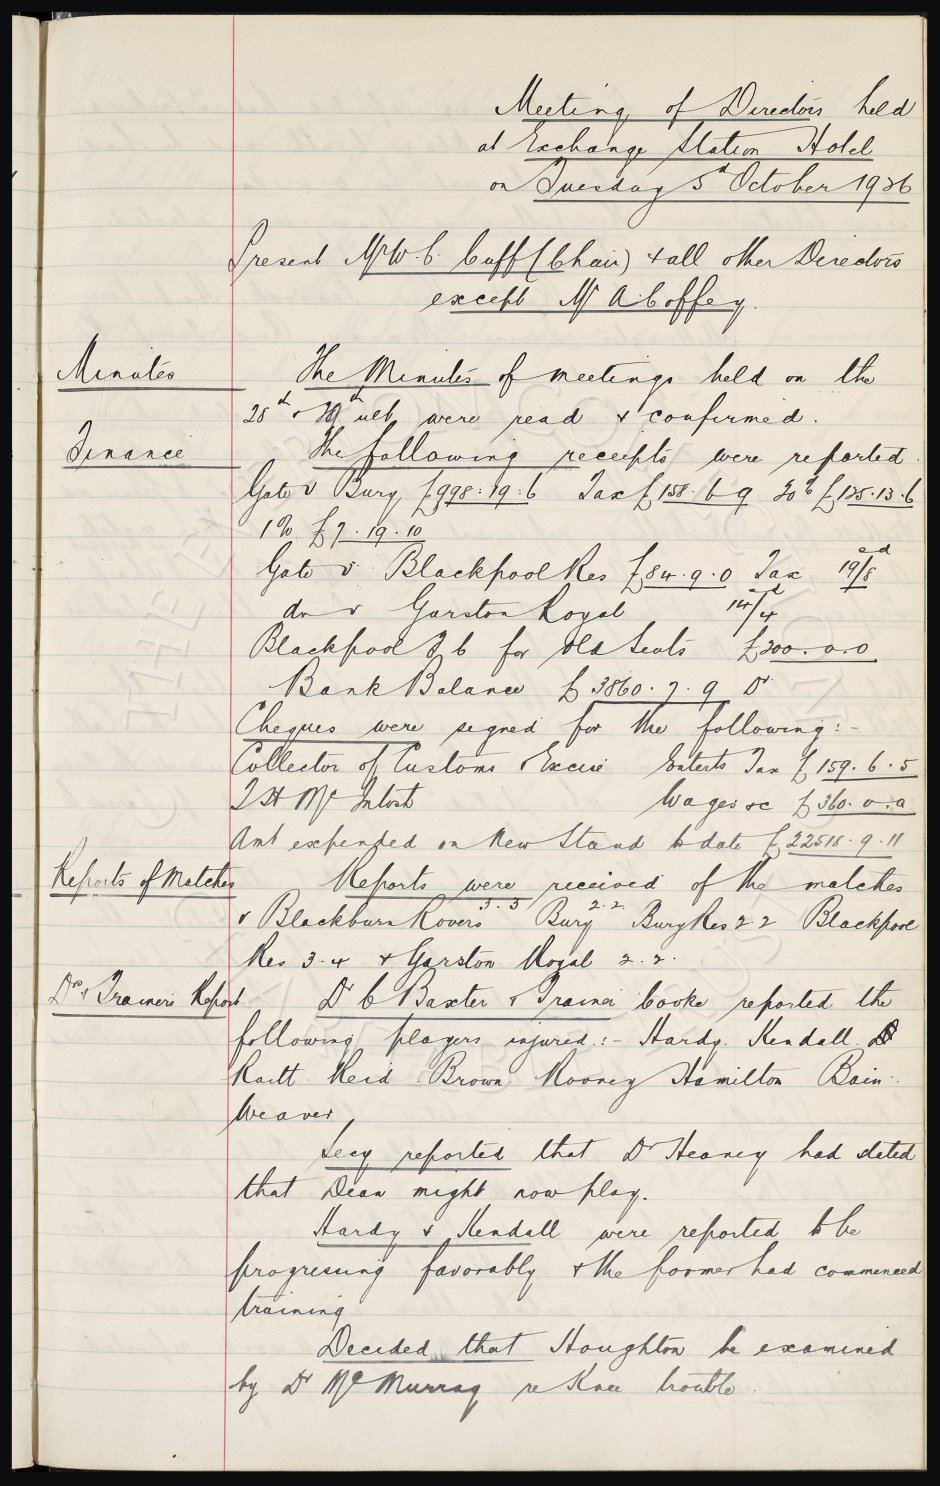 Meeting of Directors held
at Exchange Station Hotel
on Tuesday 5th October 1926
Present Mr W. C. Cuff (Chair) & all other Directors
except Mr A Coffey.
Minutes The Minutes of meetings held on the
28th & 30th ult were read & confirmed.
Finance The following receipts were reported
Gate v Bury £998.19.6 Tax £158.6.9 20% £125.13.6
1% £7.19.10
Gate v Blackpool Res £84.9.0 Tax 19/8
do v Garston Royal 14/4
Blackpool F C for old Seats £300.0.0
Bank Balance £3860.7.9 Dr
Cheques were signed for the following:-
Collector of Customs & Excise Enterts Tax £159.6.5
T H McIntosh Wages &c £360.0.0
Amt expended on New Stand to date £22518.9.11
Reports of Matches Reports were received of the matches
v Blackburn Rovers 3.3 Bury 2.2 Bury Res 2 2 Blackpool
Res 3-4 & Garston Royal 2.2.
Drs & Trainers Report Dr C Baxter & Trainer Cooke reported the
following players injured:- Hardy. Kendall.
Raitt. Reid. Brown. Rooney Hamilton Bain.
Weaver
Secy reported that Dr Heaney had stated
that Dean might now play.
Hardy & Kendall were reported to be
progressing favorably & the former had commenced
training
Decided that Houghton be examined
by Dr McMurray re Knee trouble.